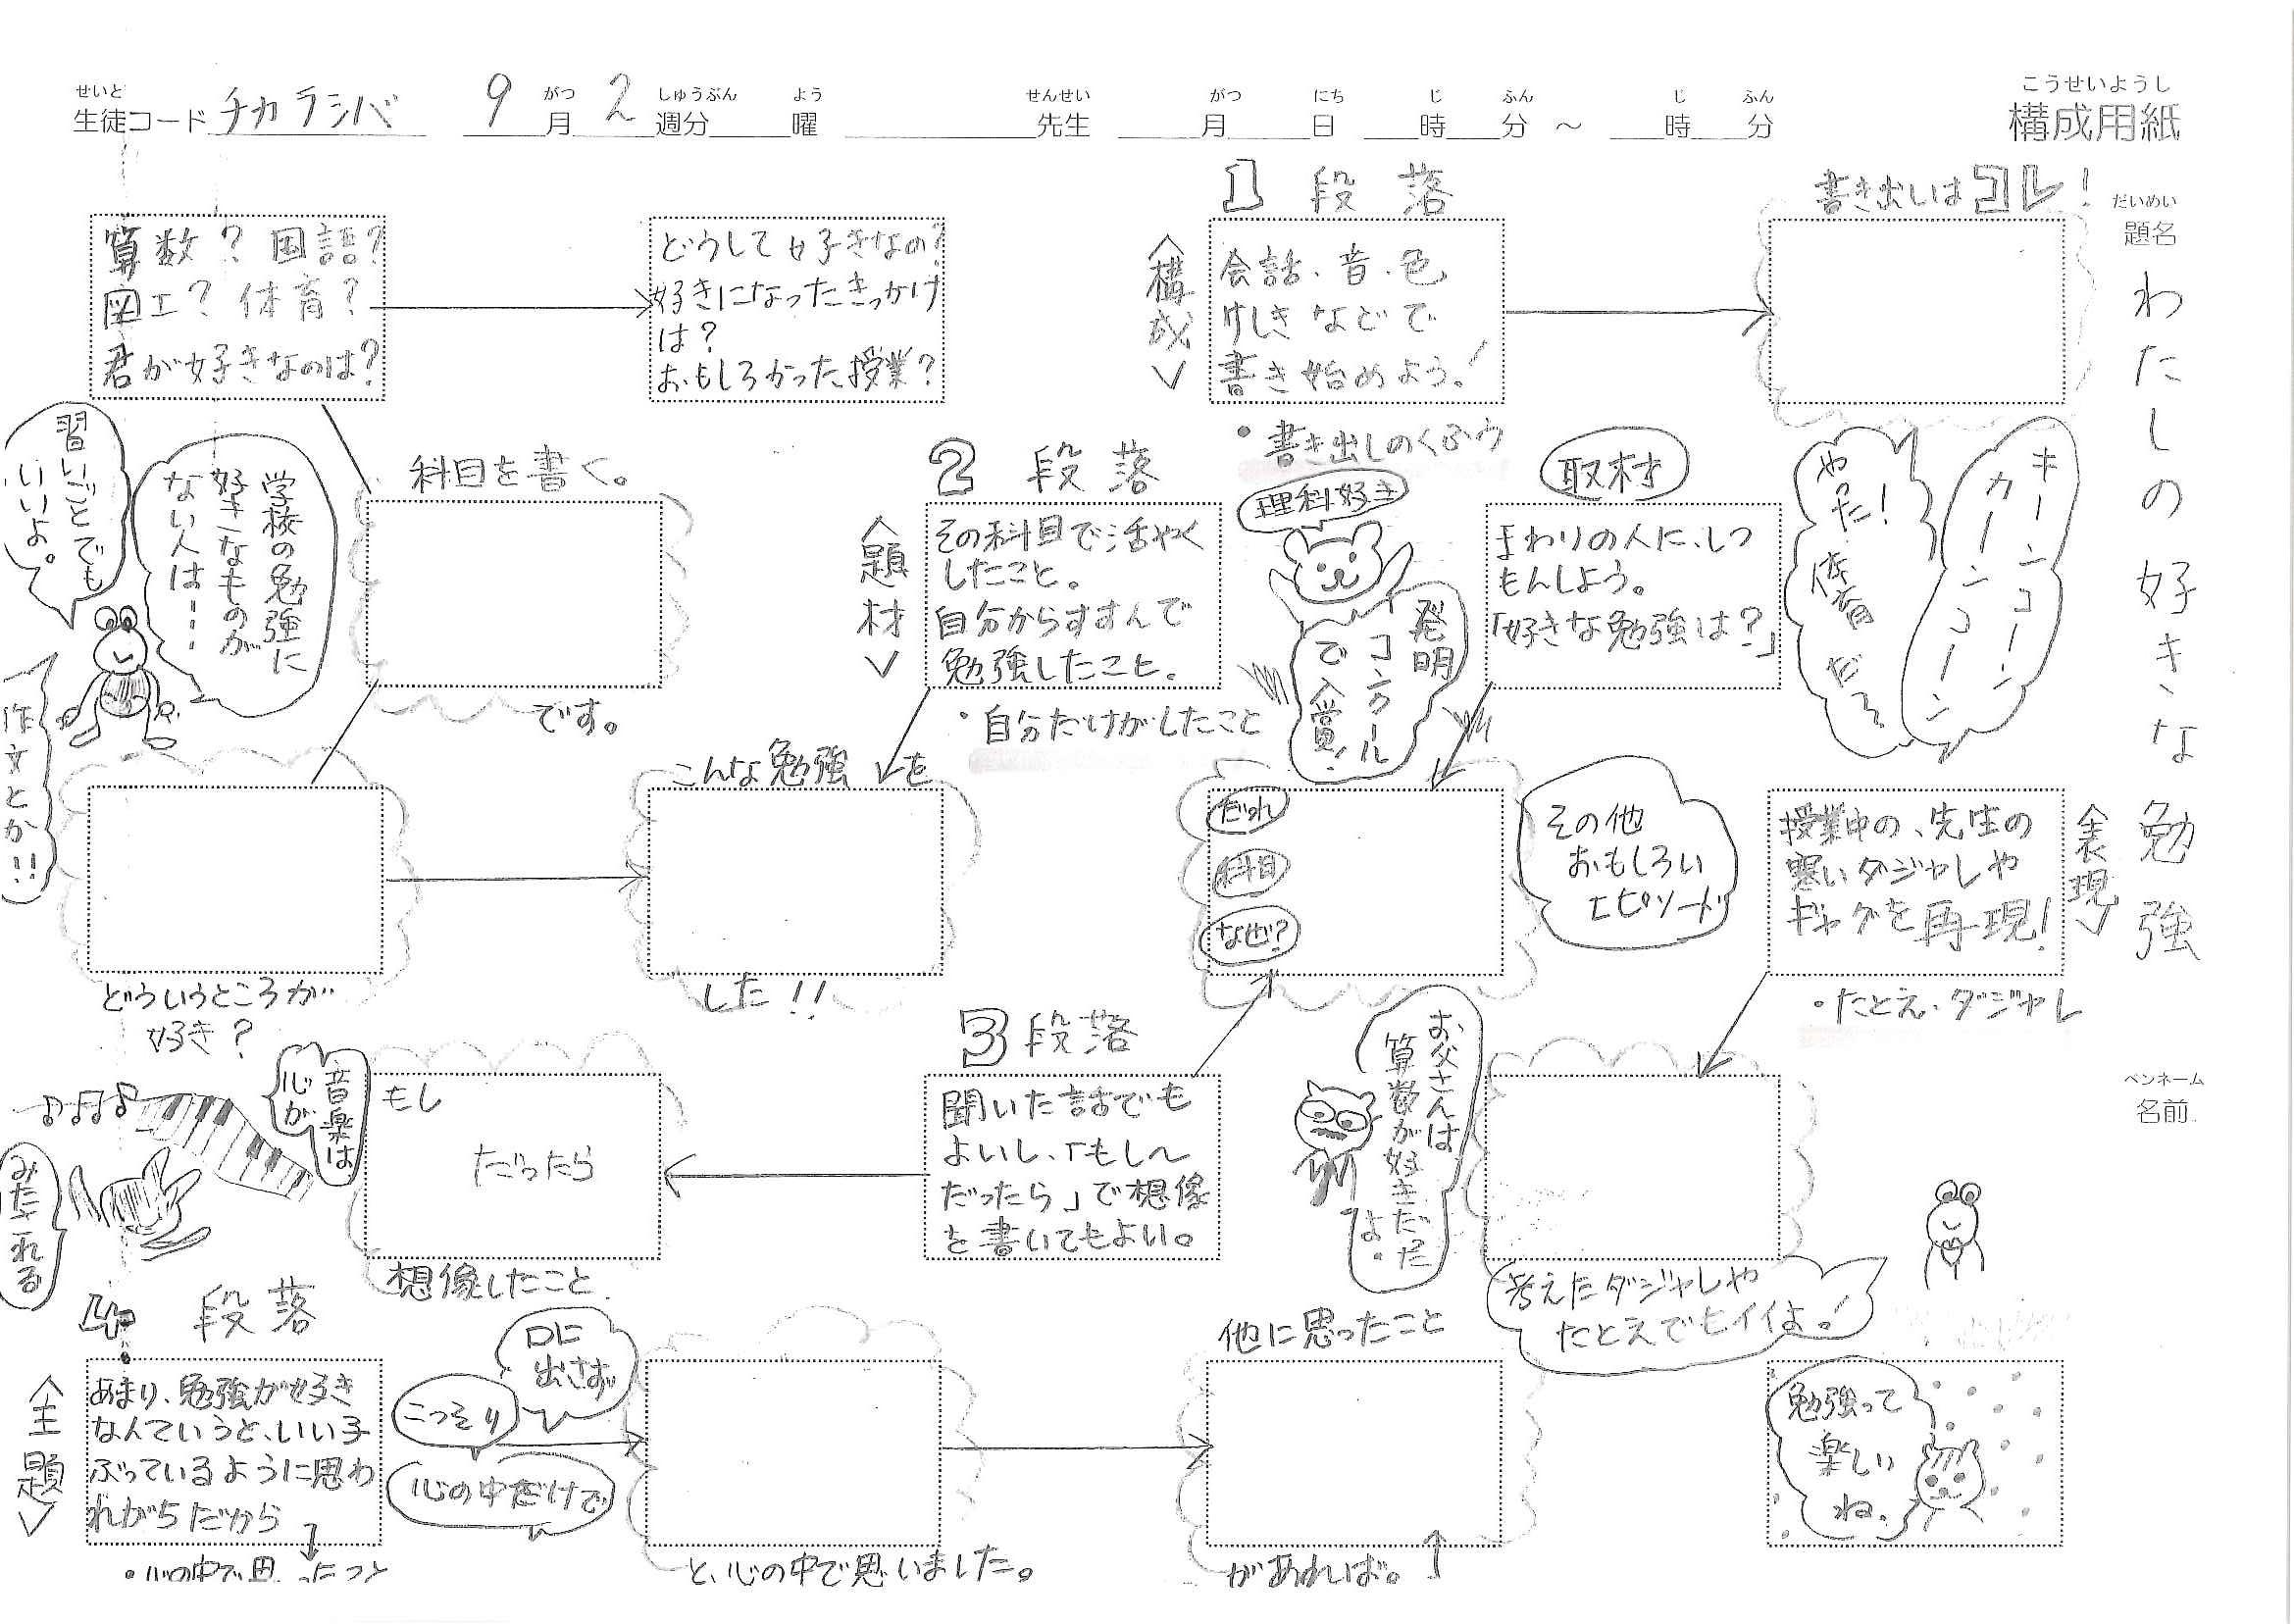 せいと
生徒コード チカラシバ
9 がつ 月 2 しゅうぶん 週分 よう 曜
せんせい 先生
がつ 月 にち 日 じ 時 ふん 分 ～ じ 時 ふん 分
こうせいようし
構成用紙
だいめい
題名
わたしの好きな勉強
ペンネーム
名前
1 段落
書き出しはコレ！
＜構成＞
会話・音・色
けしきなどで
書き始めよう！
・書き出しのくふう
キーンコーン
カーンコーン
やった！
体育だぞ
算数？国語？
図工？体育？
君が好きなのは？
どうして好きなの？
好きになったきっかけ
は？
おもしろかった授業？
習いごとでも
いいよ。
学校の勉強に
好きなものが
ない人は・・・・
作文とか！！
科目を書く。
です。
どういうところが
好き？
こんな勉強を
した！！
2 段落
＜題材＞
その科目で活やく
したこと。
自分からすすんで
勉強したこと。
・自分だけがしたこと
理科好き
発明
コンクール
で入賞！
取材
まわりの人に、しつ
もんしよう。
「好きな勉強は？」
だれ
科目
なぜ？
その他
おもしろい
エピソード
＜表現＞
授業中の、先生の
寒いダジャレや
ギャグを再現！
・たとえ・ダジャレ
考えたダジャレや
たとえでもイイよ！
3 段落
聞いた話でも
よいし、「もし～
だったら」で想像
を書いてもよい。
お父さんは
算数が好きだった
よ。
もし
だったら
想像したこと
音楽は
心が
みたされる
4 段落
＜主題＞
あまり、勉強が好き
なんていうと、いい子
ぶっているように思わ
れがちだから
・心の中で思ったこと
口に
出さず
こっそり
心の中だけで
と、心の中で思いました。
他に思ったこと
があれば。
勉強って
楽しい
ね。